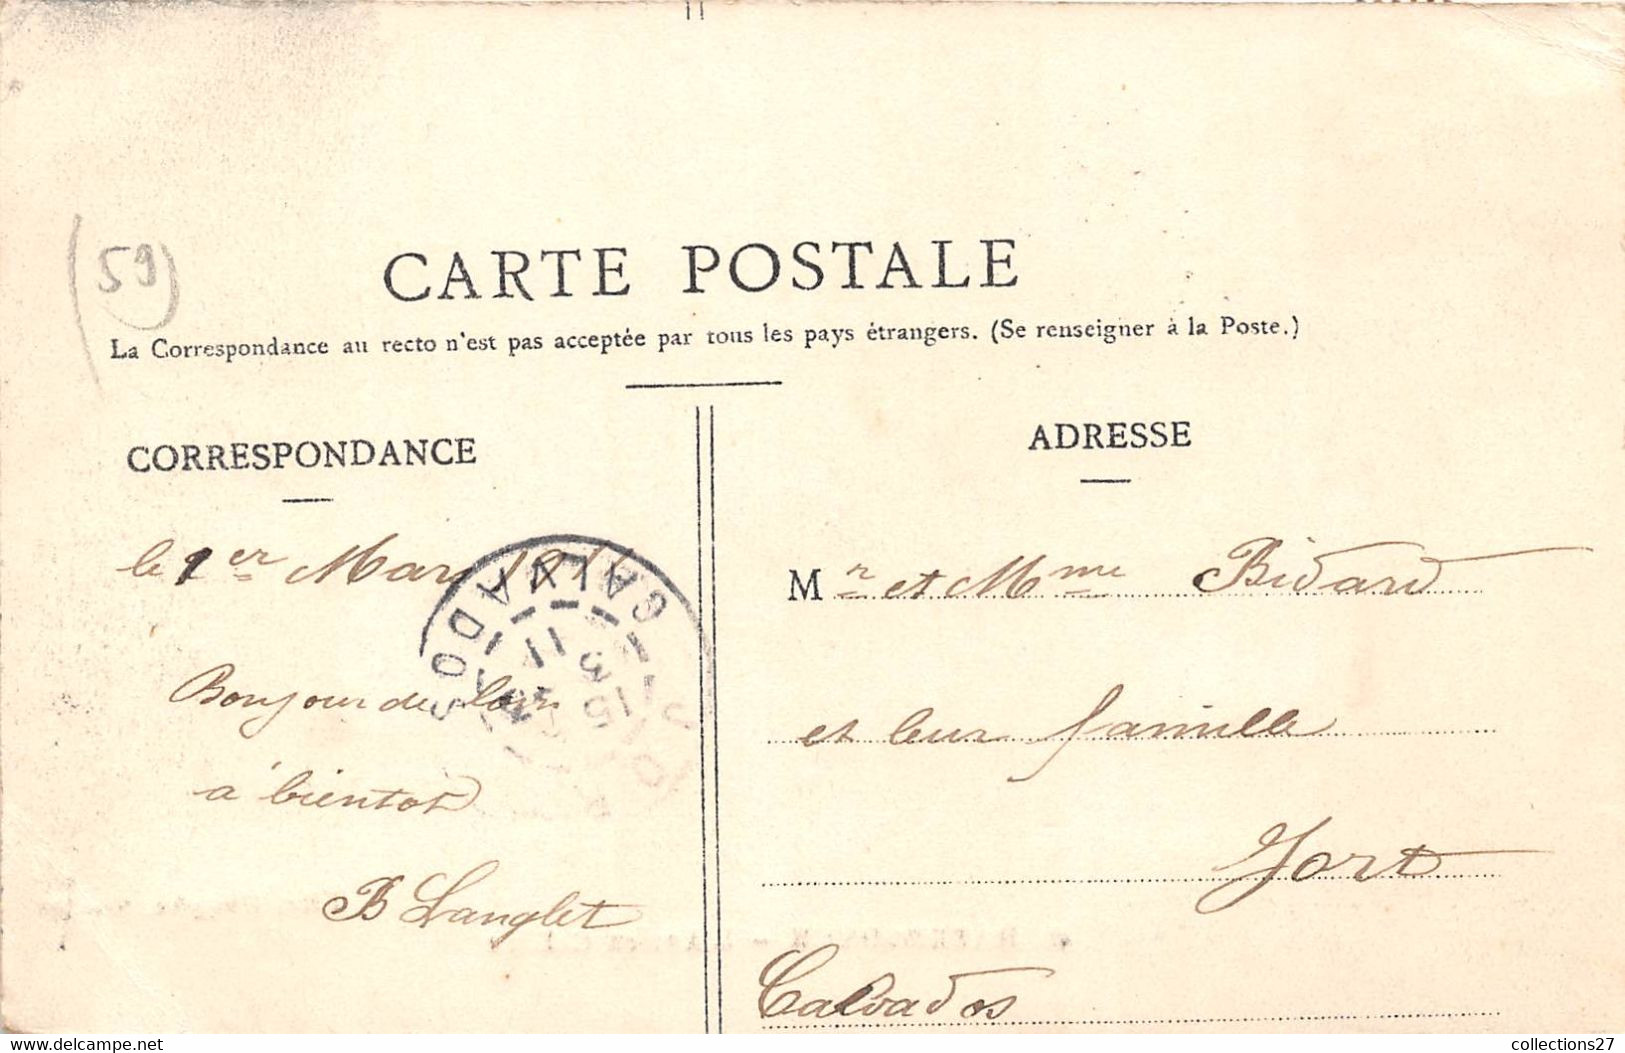 (59)
CARTE POSTALE
La Correspondance au recto n'est pas acceptée par tous les pays étrangers. (Se renseigner à la Poste.)
CORRESPONDANCE
le 1er Mars
Bonjour de loin
à bientot
B Langlet
CALVADOS
15
3
11
ADRESSE
Mr et Mme Bidard
et leur famille
Jort
Calvados
www.delcampe.net
collections27